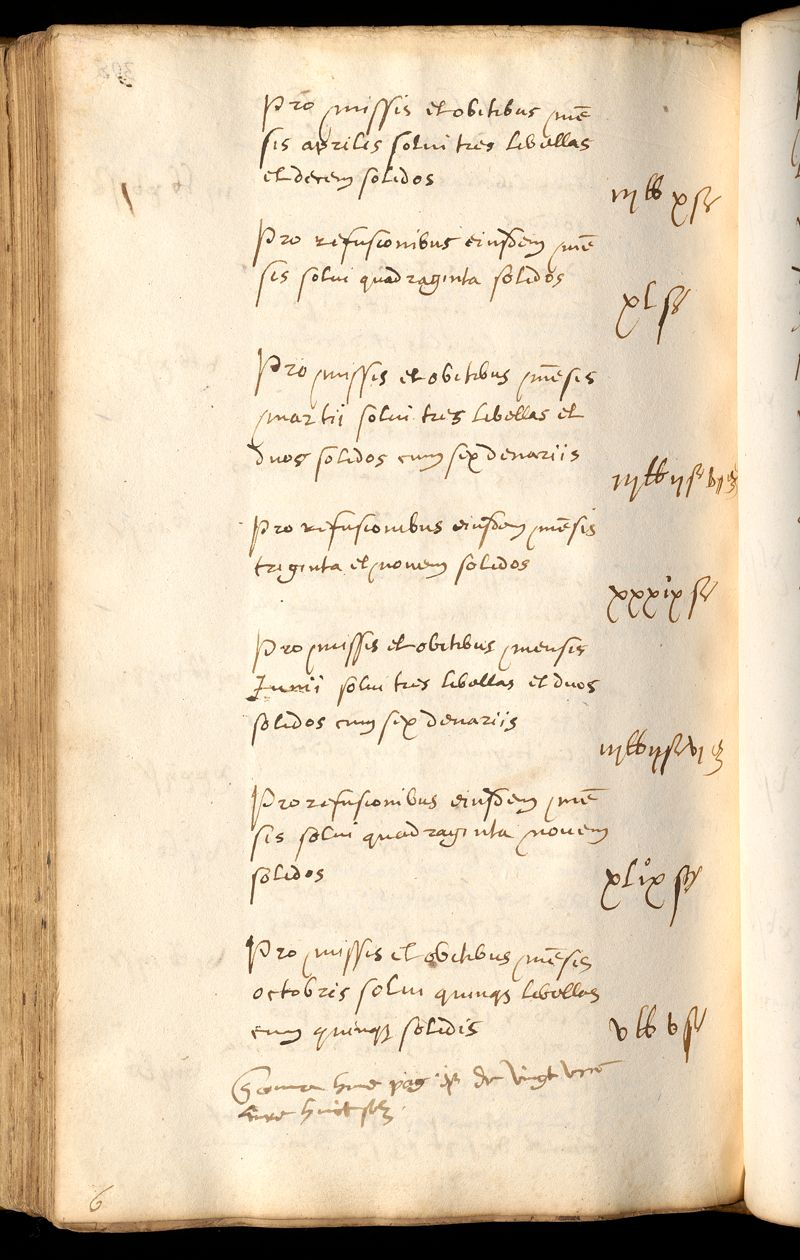 Pro missis et obitibus mē
sis aprilis solui tres libellas
et decem solidos
iij lb x s
Pro refusionibus eiusdem mē
sis solui quadraginta solidos
xl s
Pro missis et obitibus mēsis
martii solui tres libellas et
duos solidos cum sex denariis
iij lb ij s vj d
Pro refusionibus eiusdem mēsis
triginta et novem solidos
xxxix s
Pro missis et obitibus mensis
Junii solui tres libellas et duos
solidos cum sex denariis
iij lb ij s vj d
Pro refusionibus eiusdem mē
sis solui quadraginta novem
solidos
xlix s
Pro missis et obitibus mēsis
octobris solui quinqȝ libellas
cum quinqȝ solidis
v lb v s
Somma pag de vingt
livre huict
6